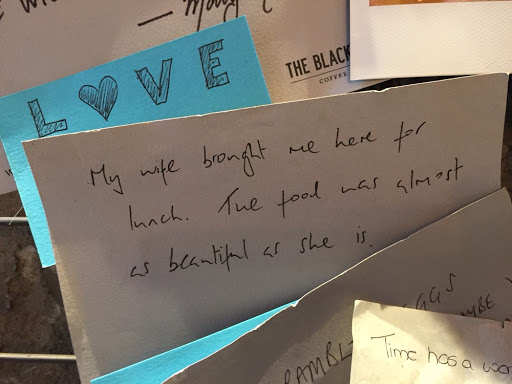 THE BLACK
COFFEE
L♡VE
My wife brought me here for
lunch. The food was almost
as beautiful as she is.
GGS
RAMBL
Time has a